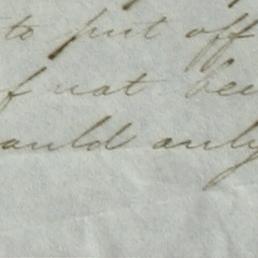 to put off
f not bee
ould only